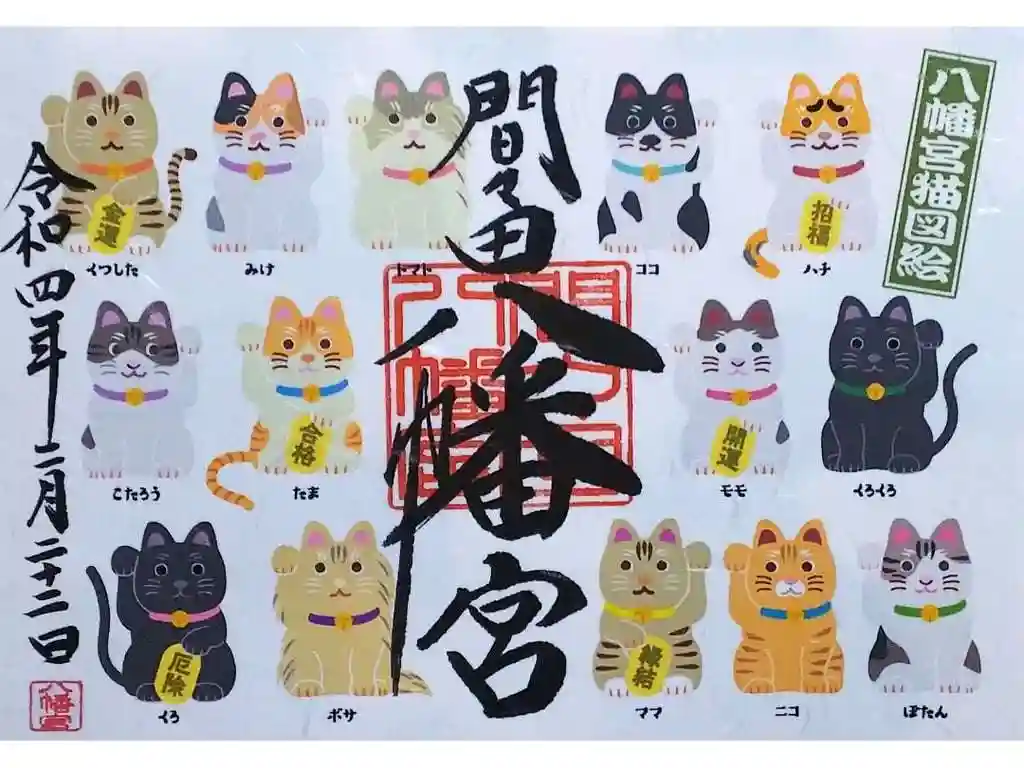 八幡宮猫図絵
間々田八幡宮
令和四年二月二十二日
八幡宮
金運
くつした
みけ
トマト
ココ
招福
ハチ
こたろう
合格
たま
開運
モモ
くろくろ
厄除
くろ
ボサ
縁結
ママ
ニコ
ぼたん